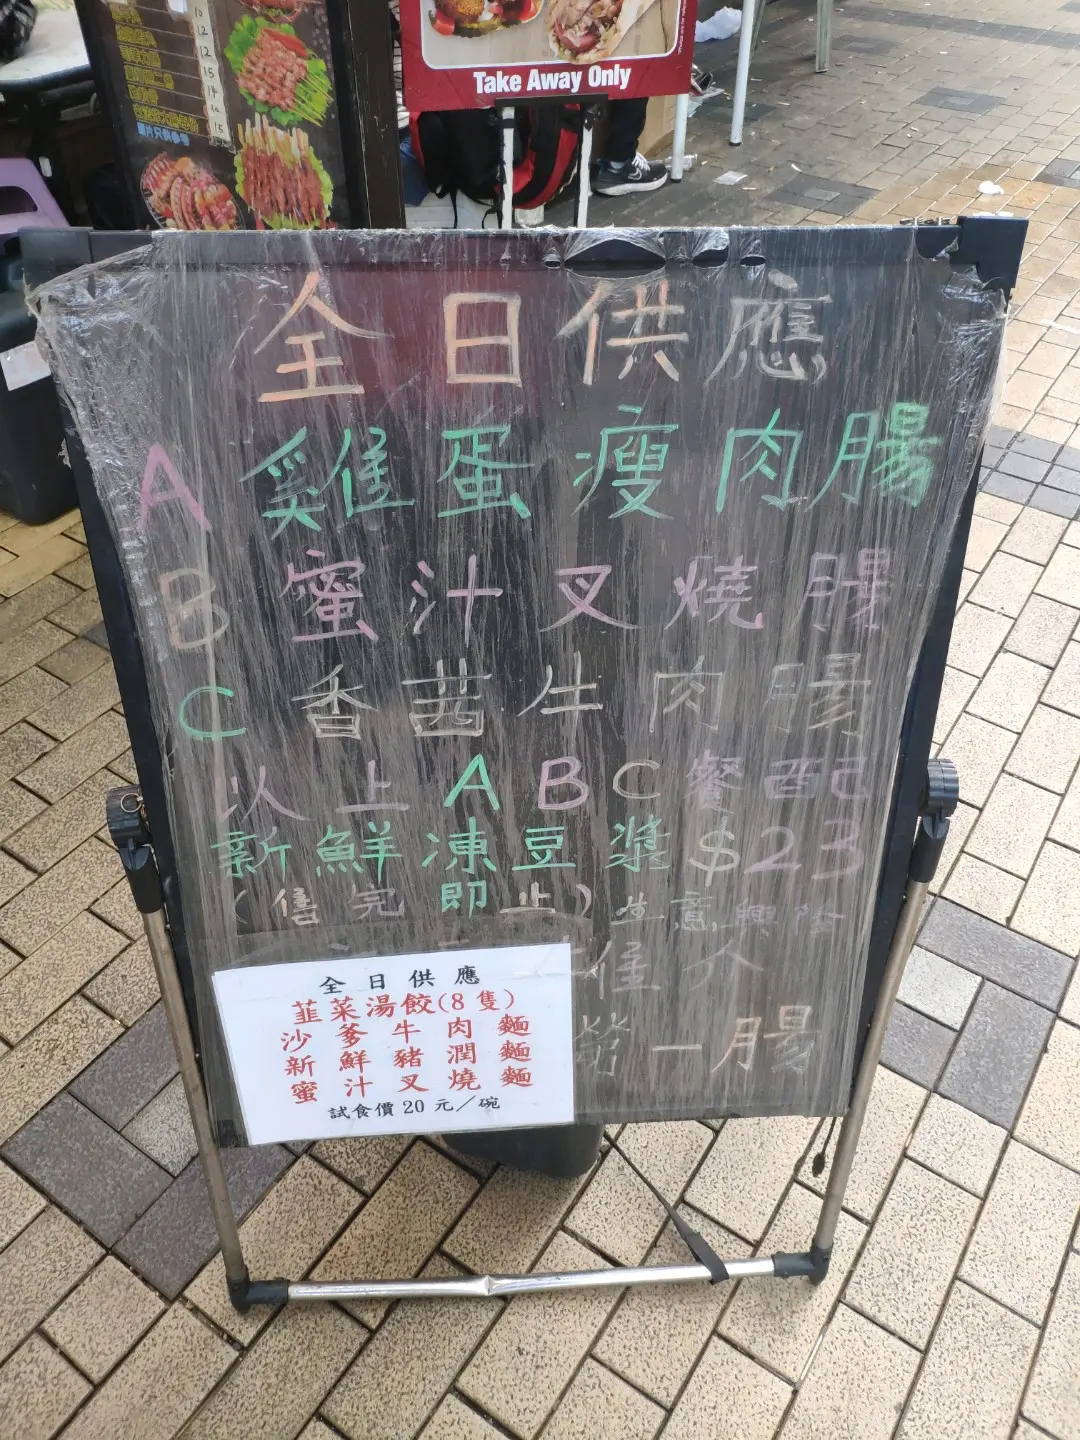 Take Away Only
全日供應
A 雞蛋瘦肉腸
B 蜜汁叉燒腸
C 香茜牛肉腸
以上ABC餐配
新鮮凍豆漿$23
(售完即止)生意興隆
全日供應
韮菜湯餃(8隻)
沙爹牛肉麵
新鮮豬潤麵
蜜汁叉燒麵
試食價20元／碗
一腸